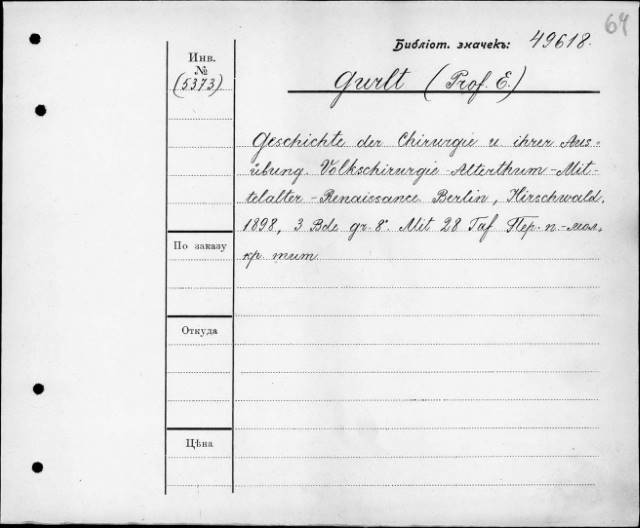 64
Библіот. значекъ: 49618.
Инв.
№
(5373)
Gurlt (Prof. E.)
Geschichte der Chirurgie u ihrer Aus-
übung. Volkschirurgie-Alterthum-Mit-
telalter-Renaissance. Berlin, Hirschwald.
1898, 3 Bde gr-8°. Mit 28 Taf Пер. п.-мол.
кр. тит
По заказу
Откуда
Цѣна